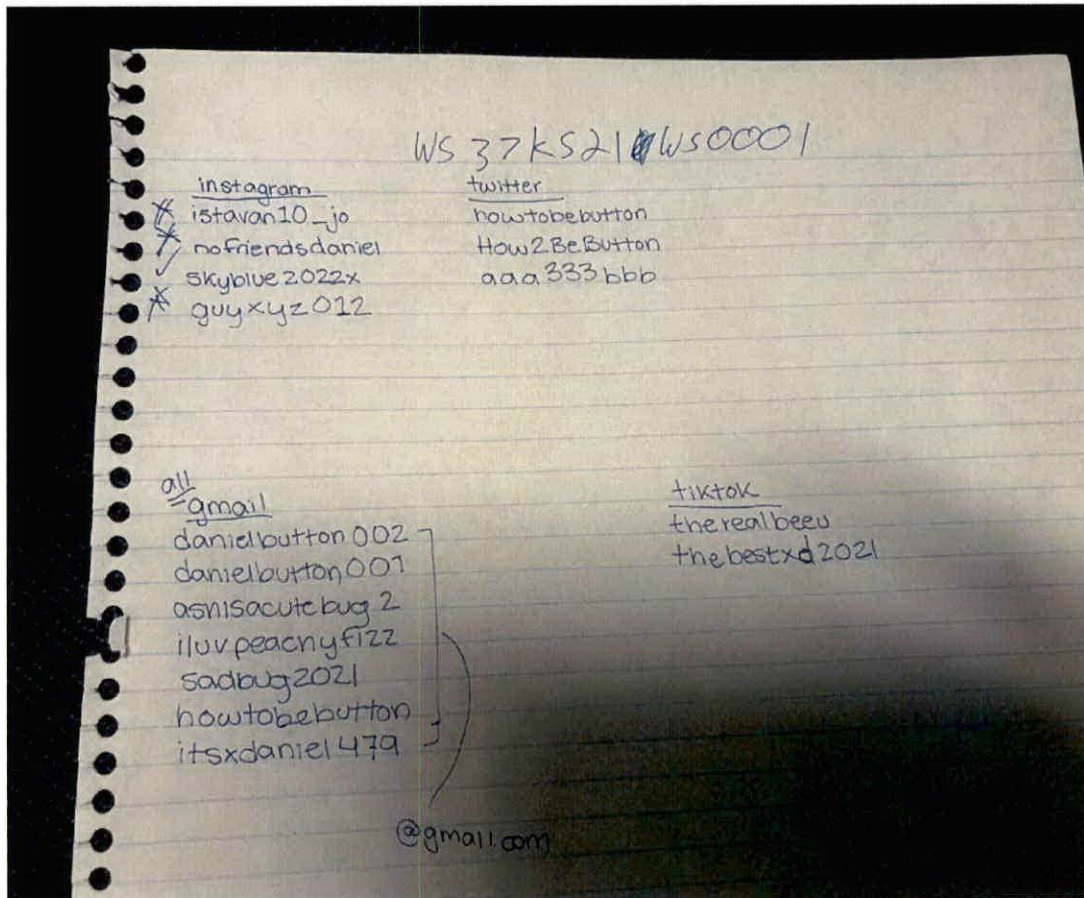 WS37KS21WS0001
instagram
istavan10_jo
nofriendsdaniel
skyblue2022x
guyxyz012
twitter
howtobebutton
How2BeButton
aaa333bbb
all
gmail
danielbutton002
danielbutton001
ashisacutebug2
iluvpeachyfizz
sadbug2021
howtobebutton
itsxdaniel479
@gmail.com
tiktok
therealbeeu
thebestxd2021